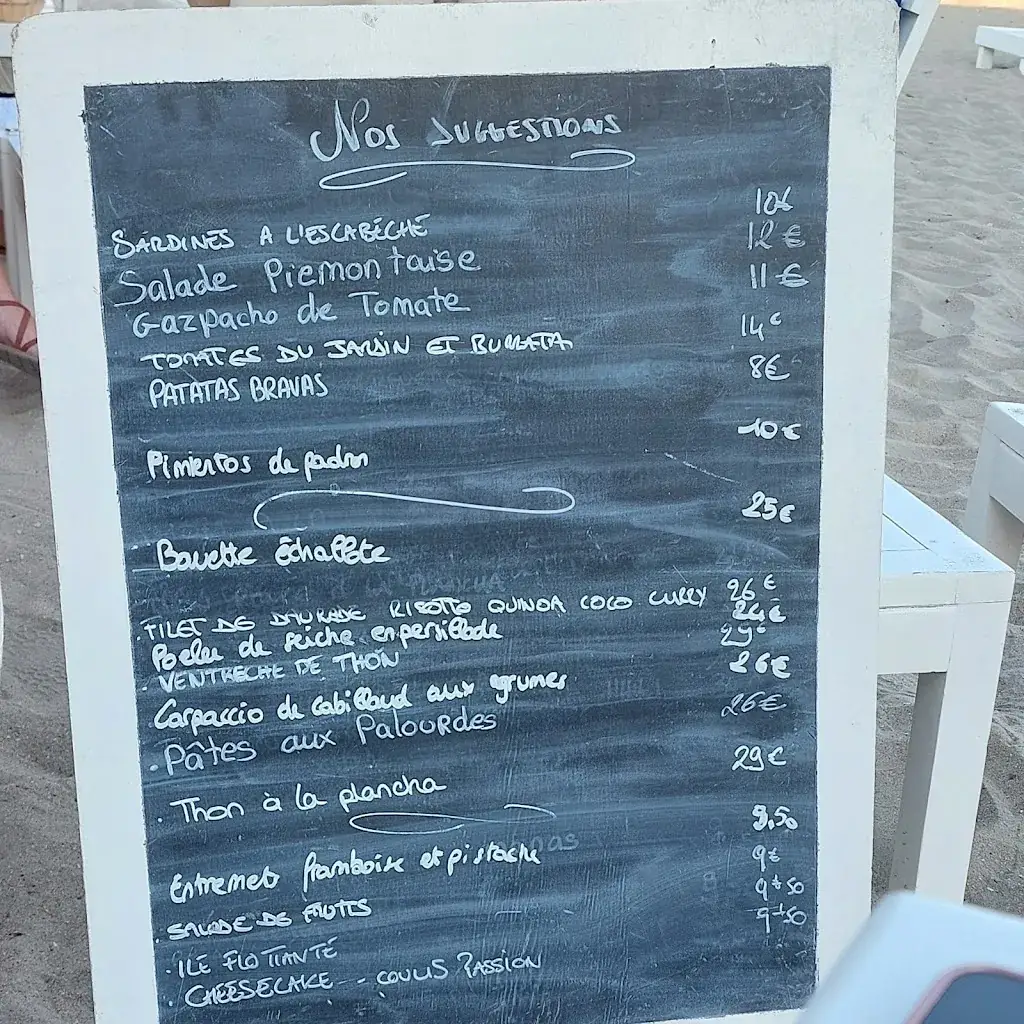 Nos SUGGESTIONS
SARDINES A L'ESCABÉCHE 10€
Salade Piemontaise 12 €
Gazpacho de Tomate 11 €
TOMATES DU JARDIN ET BURRATA 14€
PATATAS BRAVAS 8€
Pimientos de padron 10€
Bavette échalote 25€
. FILET DE DAURADE RISOTTO QUINOA COCO CURRY 26 €
Poelee de seiche en persillade 24€
. VENTRECHE DE THON 29€
Carpaccio de cabillaud aux agrumes 26€
. Pâtes aux PalouRdes 26€
. Thon à la plancha 29€
Entremets framboise et pistache 9,50
. SALADE DE FRUITS 9€
. ILE FLOTTANTE 9€50
. CHEESECAKE -- COULIS PASSION 9€50